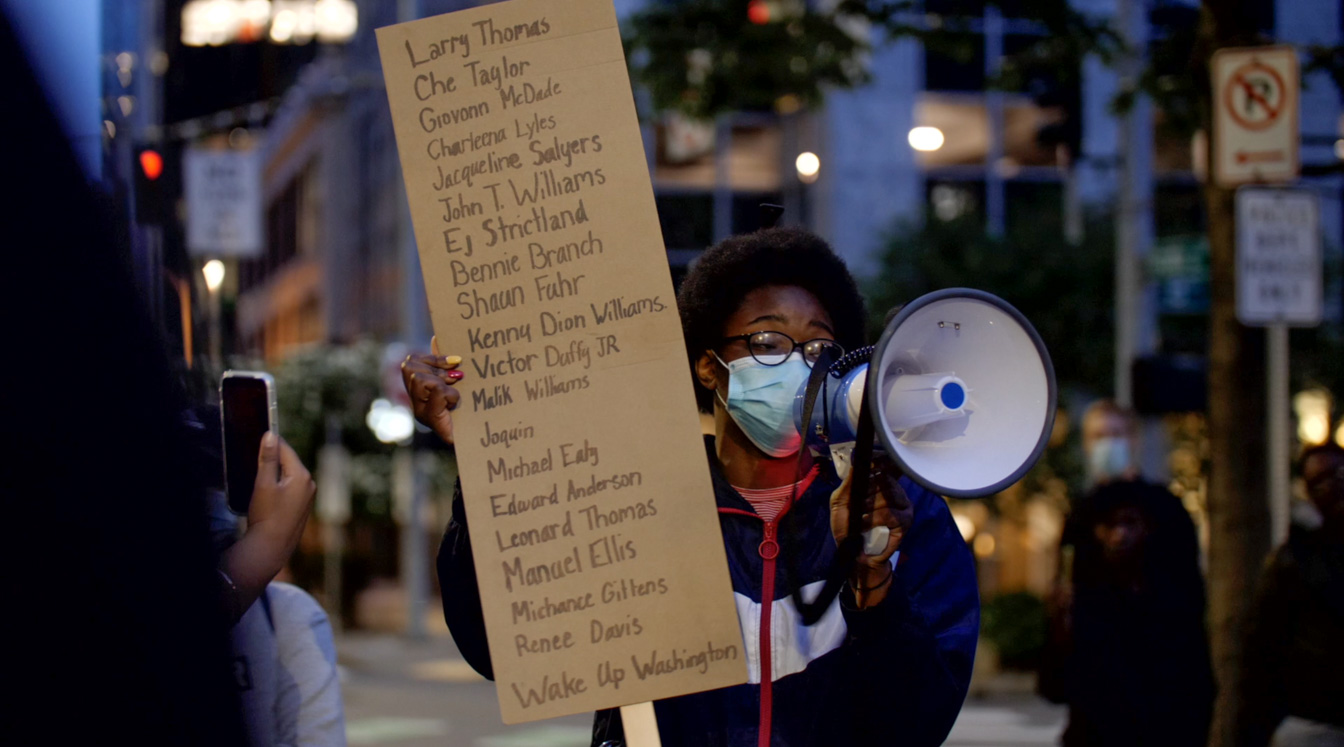 Larry Thomas
Che Taylor
Giovonn McDade
Charleena Lyles
Jacqueline Salyers
John T. Williams
EJ Strictland
Bennie Branch
Shaun Fuhr
Kenny Dion Williams.
Victor Duffy JR
Malik Williams
Joquin
Michael Ealy
Edward Anderson
Leonard Thomas
Manuel Ellis
Michance Gittens
Renee Davis
Wake Up Washington